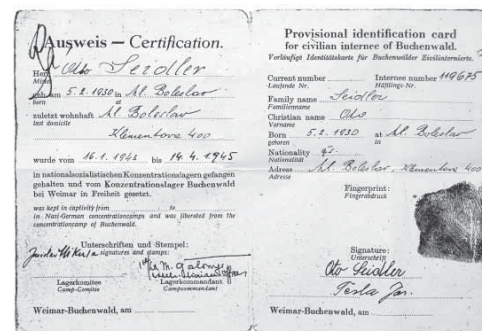 Ausweis — Certification.
Herr Otto Seidler
geb. am 5.2.1930 in Ml. Boleslav
born at
zuletzt wohnhaft Ml. Boleslav
last domicile
Klementova 400
wurde vom 16.1.1943 bis 14.4.1945
in nationalsozialistischen Konzentrationslagern gefangen
gehalten und vom Konzentrationslager Buchenwald
bei Weimar in Freiheit gesetzt.
was kept in captivity from to
in Nazi-German concentrationcamps and was liberated from the
concentrationcamp of Buchenwald.
Unterschriften und Stempel:
signatures and stamps:
Lagerkomitee Lagerkommandant
Camp-Comitee Campcommandant
Weimar-Buchenwald, am
Provisional identification card
for civilian internee of Buchenwald.
Vorläufige Identitätskarte für Buchenwälder Zivilinternierte.
Current number Internee number 119675
Laufende Nr. Häftlings-Nr.
Family name Seidler
Familienname
Christian name Otto
Vorname
Born 5.2.1930 at Ml. Boleslav
geboren in
Nationality
Nationalität
Adress Ml. Boleslav, Klementova 400
Adresse
Fingerprint:
Fingerabdruck
Signature:
Unterschrift
Oto Seidler
Tesla
Weimar-Buchenwald, am